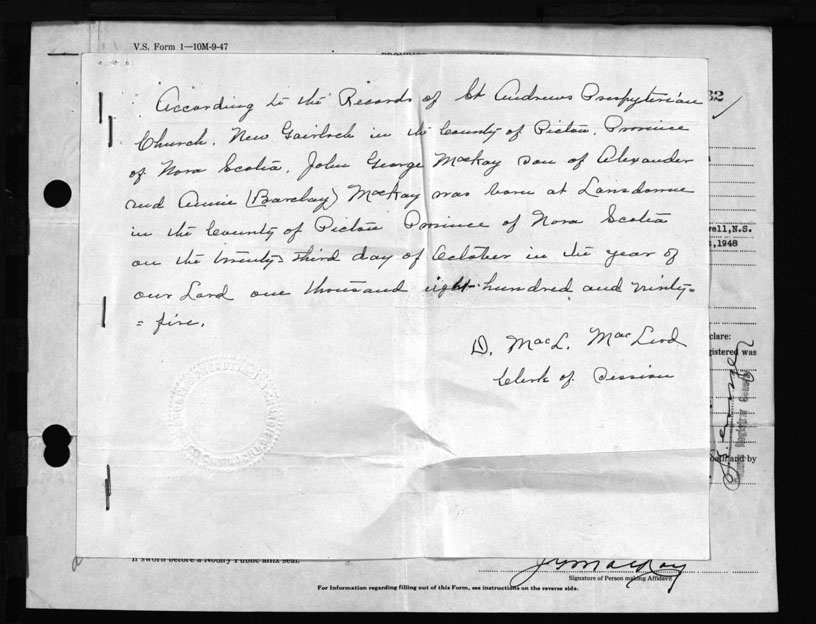 V.S. Form 1—10M-9-47
32
According to the Records of St Andrews Presbyterian
Church, New Gairloch in the County of Pictou, Province
of Nova Scotia, John George MacKay son of Alexander
and Annie (Barclay) MacKay was born at Lansdowne
in the County of Pictou Province of Nova Scotia
on the twenty-third day of October in the year of
our Lord one thousand eight hundred and ninety=
= five.
D. MacL. MacLeod
Clerk of Session
well, N.S.
,1948
clare:
gistered was
and by
If sworn before a Notary Public affix seal.
J G MacKay
Signature of Person making Affidavit
For Information regarding filling out of this Form, see instructions on the reverse side.